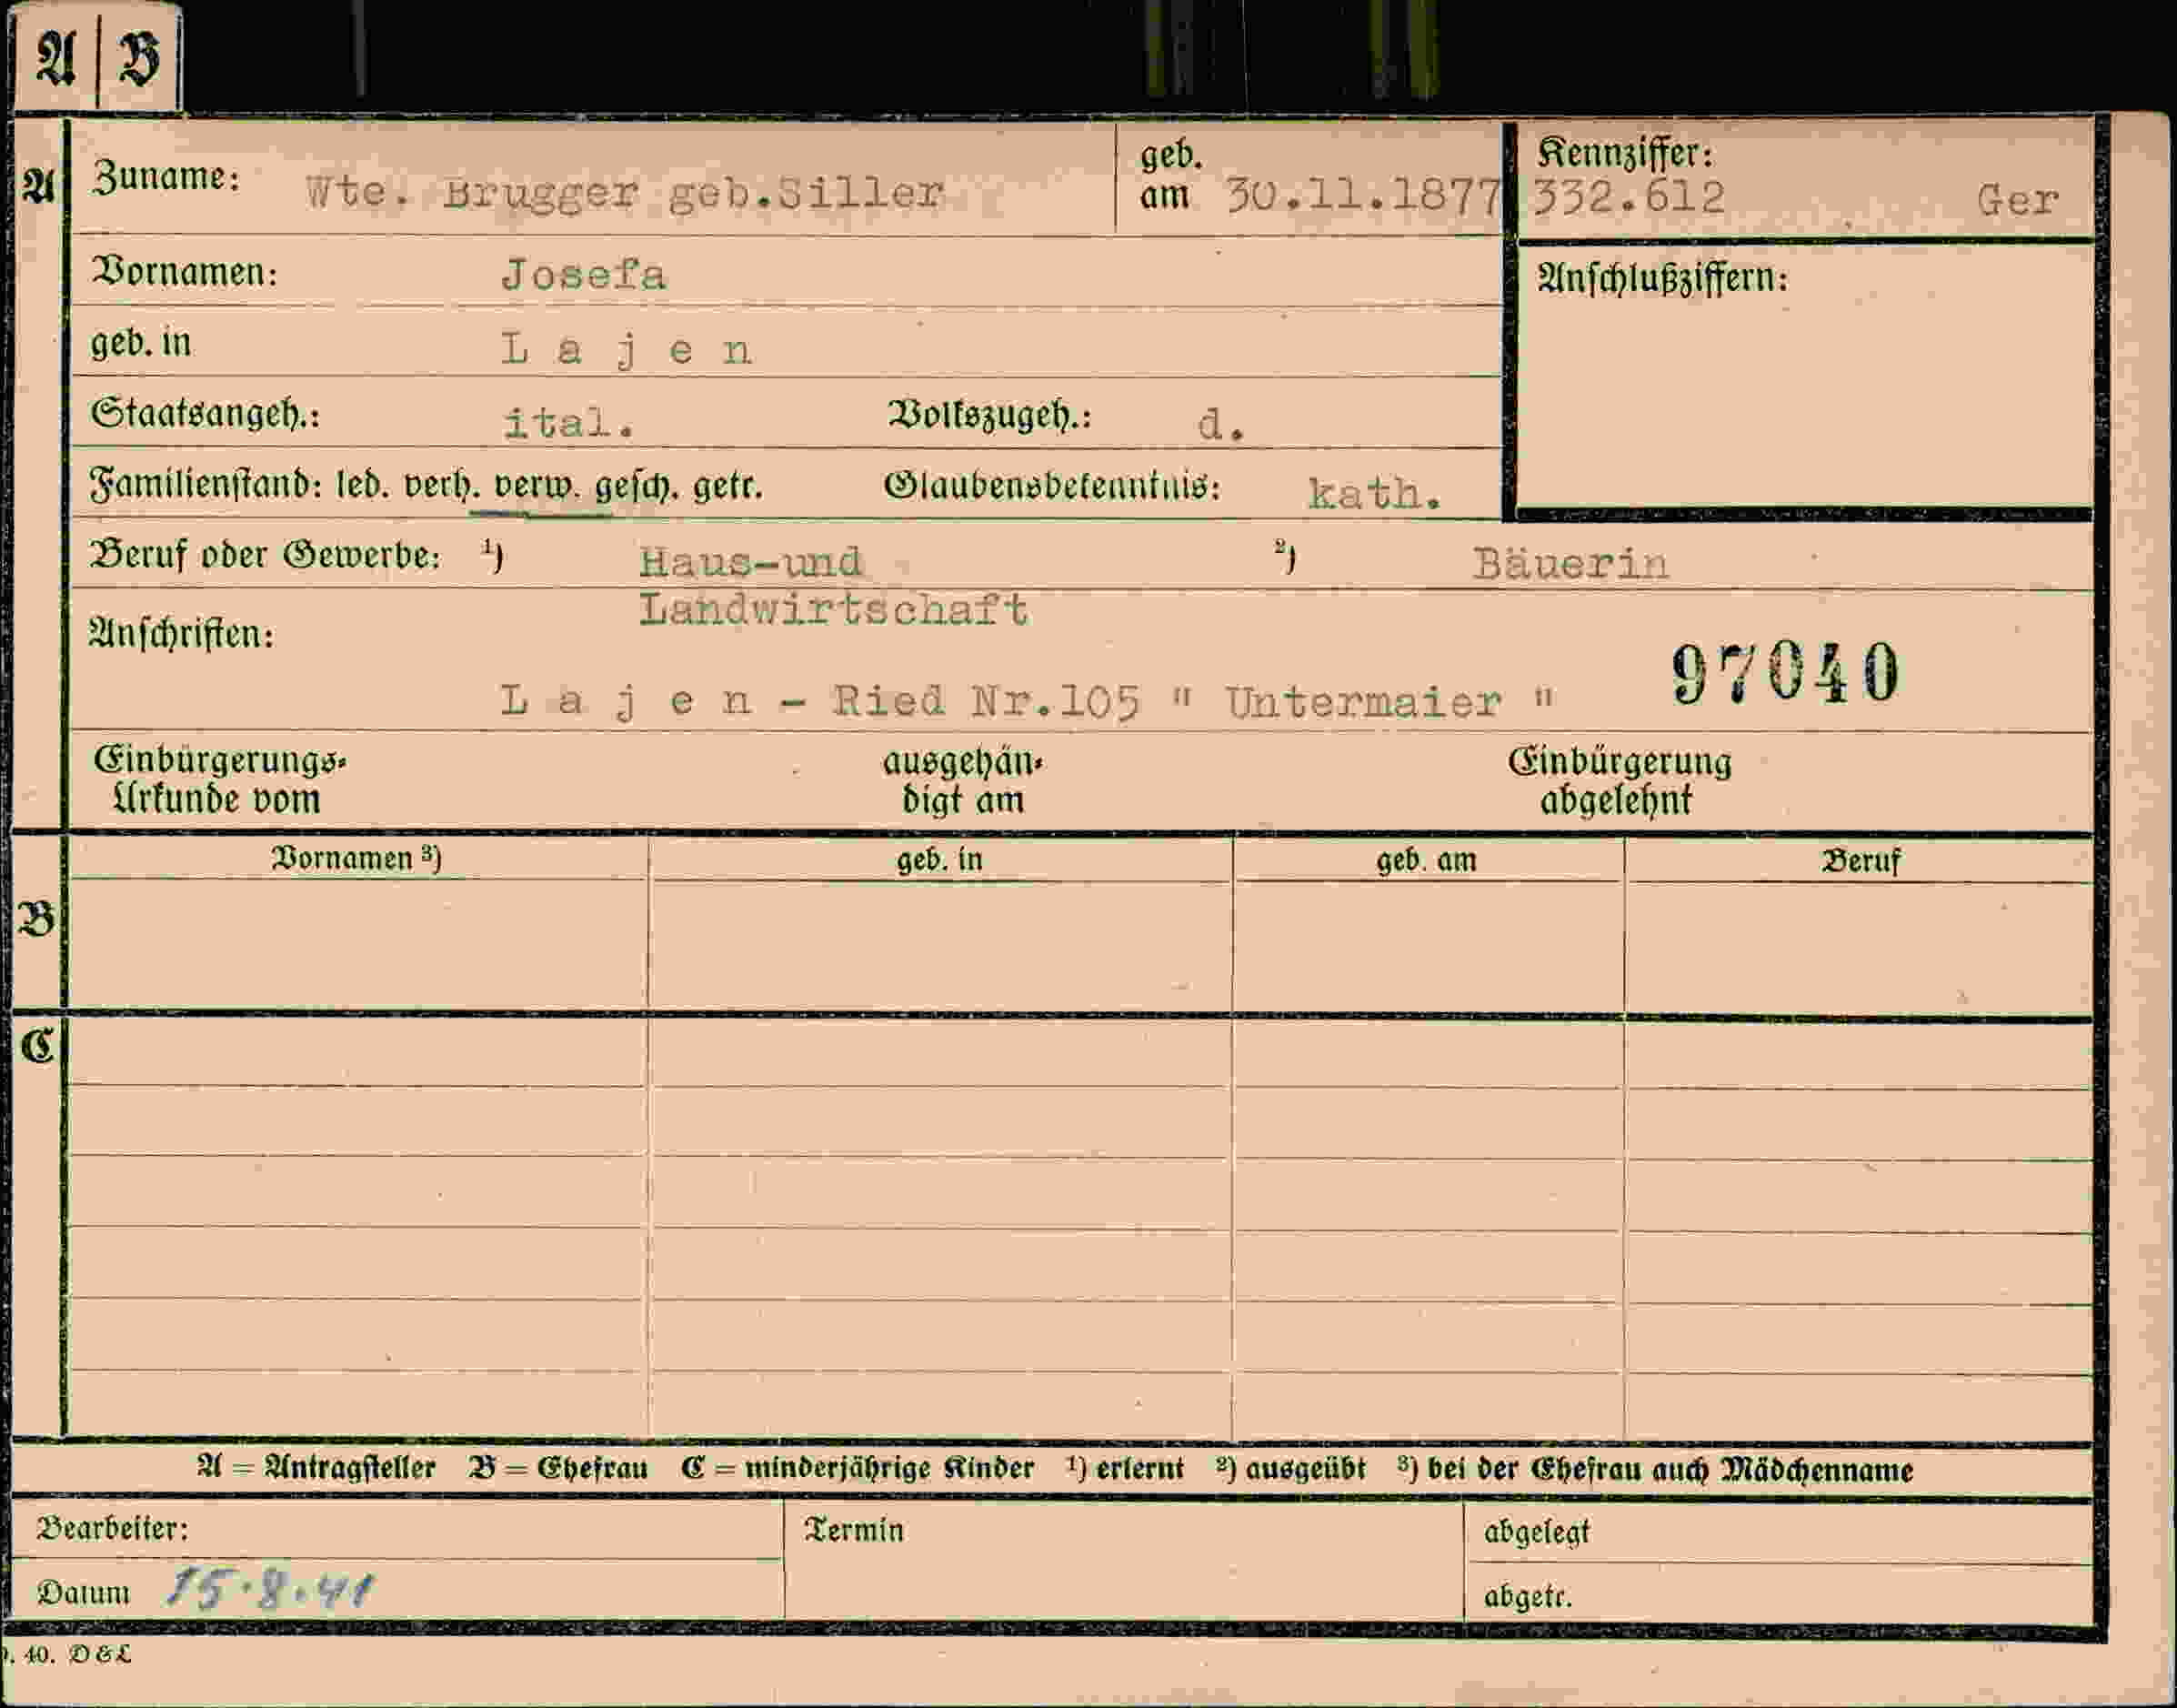 A | B
A Zuname: Wte. Brugger geb.Siller geb. am 30.11.1877 Kennziffer: 332.612 Ger
Vornamen: Josefa Anschlußziffern:
geb. in L a j e n
Staatsangeh.: ital. Volkszugeh.: d.
Familienstand: led. verh. verw. gesch. getr. Glaubensbekenntnis: kath.
Beruf oder Gewerbe: ¹) Haus-und ²) Bäuerin
Landwirtschaft
Anschriften:
97040
L a j e n - Ried Nr.105 " Untermaier "
Einbürgerungs- ausgehän- Einbürgerung
Urkunde vom digt am abgelehnt
Vornamen ³) geb. in geb. am Beruf
B
C
A = Antragsteller B = Ehefrau C = minderjährige Kinder ¹) erlernt ²) ausgeübt ³) bei der Ehefrau auch Mädchenname
Bearbeiter: Termin abgelegt
Datum 15.8.41 abgetr.
40. D & L